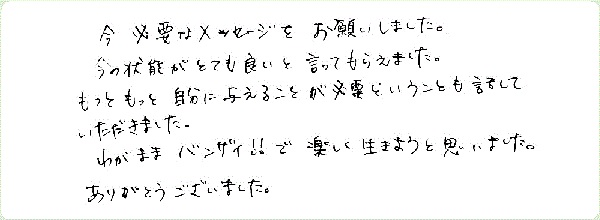 今 必要なメッセージを お願いしました。
今の状態がとても良いと 言ってもらえました。
もっともっと 自分に与えることが必要ということも 話して
いただきました。
わがまま バンザイ!! で 楽しく 生きようと思いました。
ありがとうございました。